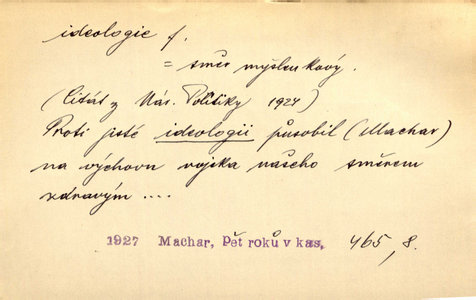 ideologie f.
= směr myšlenkový.
(Citát z Nár. Politiky 1924)
Proti jisté ideologii působil (Machar)
na výchovu vojska našeho směrem
zdravým ....
1927 Machar, Pět roků v kas. 465, 8.